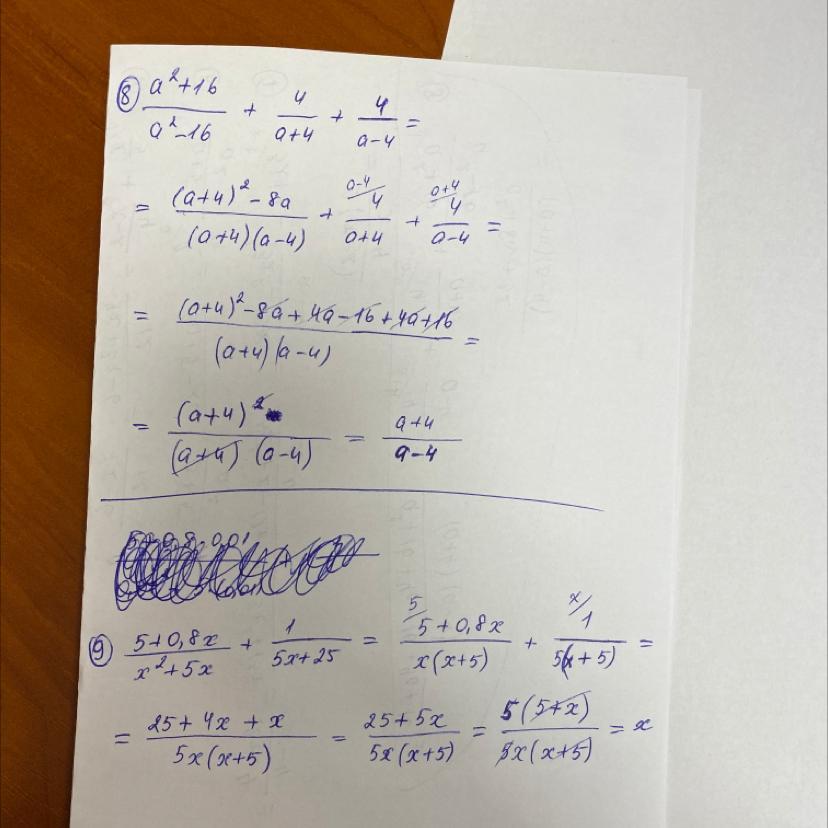 8 (a²+16)/(a²-16) + 4/(a+4) + 4/(a-4) =
= ((a+4)²-8a)/((a+4)(a-4)) + a-4/ 4/(a+4) + a+4/ 4/(a-4) =
= ((a+4)²-8a+4a-16+4a+16)/((a+4)(a-4)) =
= (a+4)²/((a+4)(a-4)) = (a+4)/(a-4)
9 (5+0,8x)/(x²+5x) + 1/(5x+25) = 5/ (5+0,8x)/(x(x+5)) + x/ 1/(5(x+5)) =
= (25+4x+x)/(5x(x+5)) = (25+5x)/(5x(x+5)) = 5(5+x)/(5x(x+5)) = x